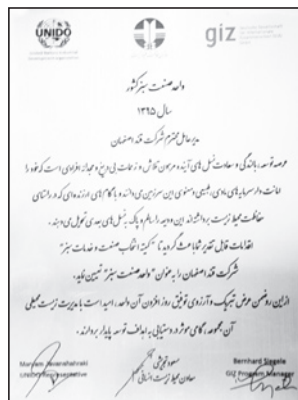 UNIDO
giz
واحد صنعت سبز کشور
سال ۱۳۹۵
مدیرعامل محترم شرکت قند اصفهان
عرصه توسعه، بالندگی و سعادت نسل های آینده مرهون تلاش و زحمات بی دریغ و مجدانه افرادی است که خود را
امانت دار سرمایه های مادی، طبیعی و معنوی این سرزمین می دانند و با گام های ارزنده ای که در راستای
حفاظت محیط زیست برداشته اند این ودیعه را سالم و پاک به نسل های بعدی تحویل می دهند.
اقدامات قابل تقدیر شما باعث گردید تا "کمیته انتخاب صنعت و خدمات سبز"
شرکت قند اصفهان را به عنوان "واحد صنعت سبز" تعیین نماید.
از این رو ضمن عرض تبریک و آرزوی توفیق روز افزون آن واحد، امید است با مدیریت زیست محیطی
آن مجموعه، گامی موثر در دستیابی به اهداف توسعه پایدار بردارند.
Maryam Javanshahraki
UNIDO Representative
معاون محیط زیست انسانی
Bernhard Siegele
GIZ Program Manager